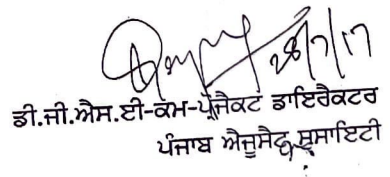 28/7/17
ਡੀ.ਜੀ.ਐਸ.ਈ-ਕਮ-ਪ੍ਰੋਜੈਕਟ ਡਾਇਰੈਕਟਰ
ਪੰਜਾਬ ਐਜੂਸੈਟ ਸੁਸਾਇਟੀ